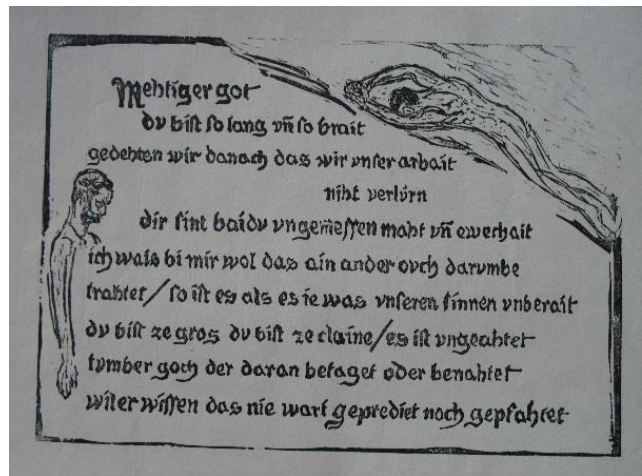 Mehtiger got
dv bist so lang vn̄ so brait
gedehten wir danach das wir vnser arbait
niht verlürn
dir sint baidv vngemessen maht vn̄ ewechait
ich wais bi mir wol das ain ander ovch darvmbe
trahtet / so ist es als es ie was vnseren sinnen vnberait
dv bist ze gros dv bist ze claine / es ist vngeahtet
tvmber goch der daran betaget oder benahtet
wil er wissen das nie wart gepredict noch gepfahtet